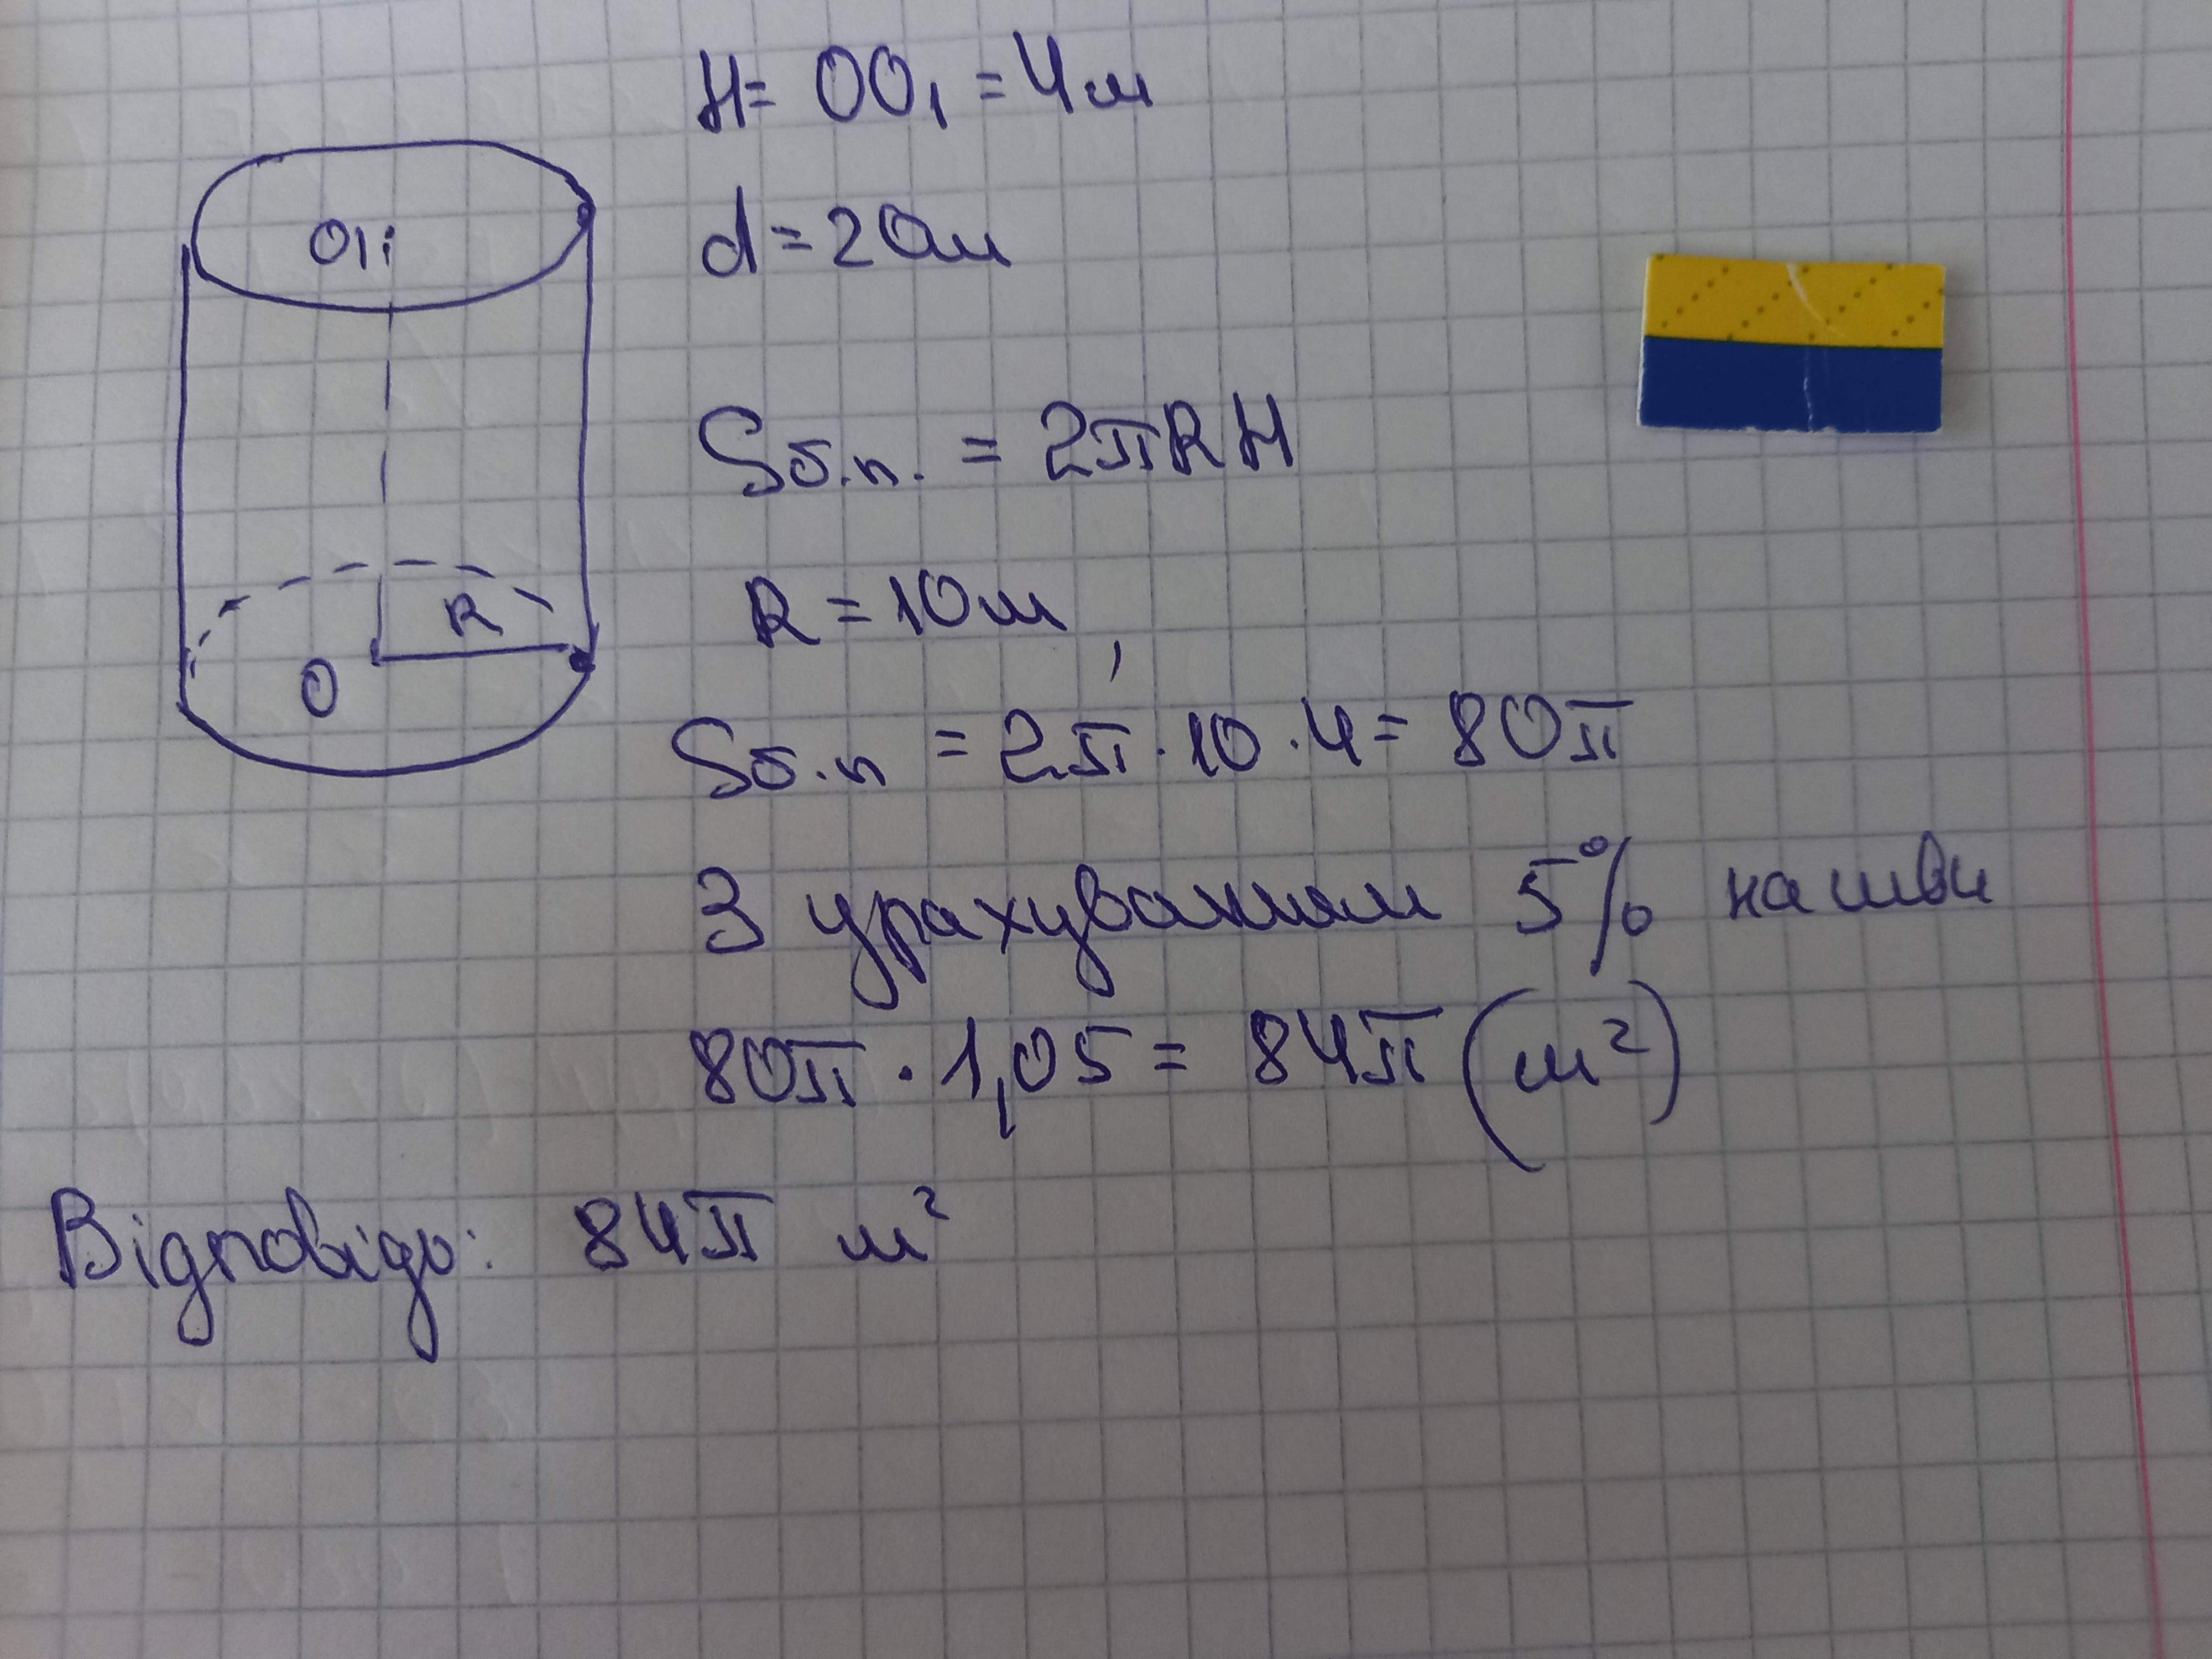 H = OO₁ = 4м
d = 20м
O₁
Sб.п. = 2πRH
R = 10м
R
O
Sб.п = 2π · 10 · 4 = 80π
З урахуванням 5% на шви
80π · 1,05 = 84π (м²)
Відповідь: 84π м²